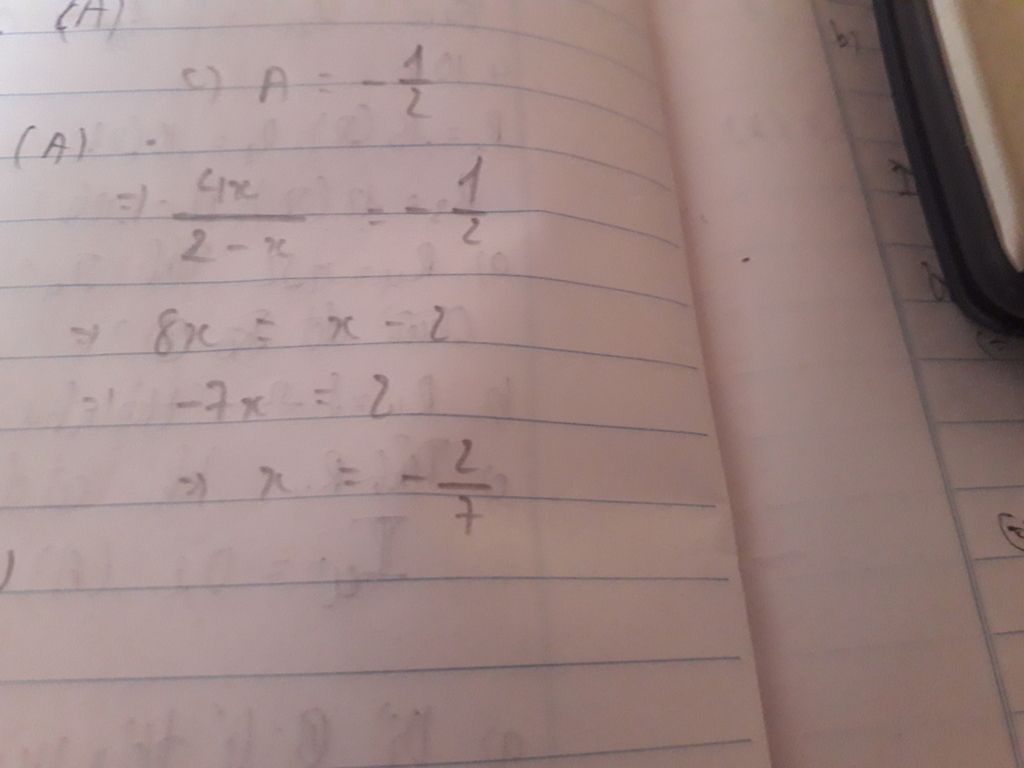 (A)
c) A = -1/2
(A)
=> 4x/(2 - x) = -1/2
=> 8x = x - 2
=> -7x = 2
=> x = -2/7
)
b)